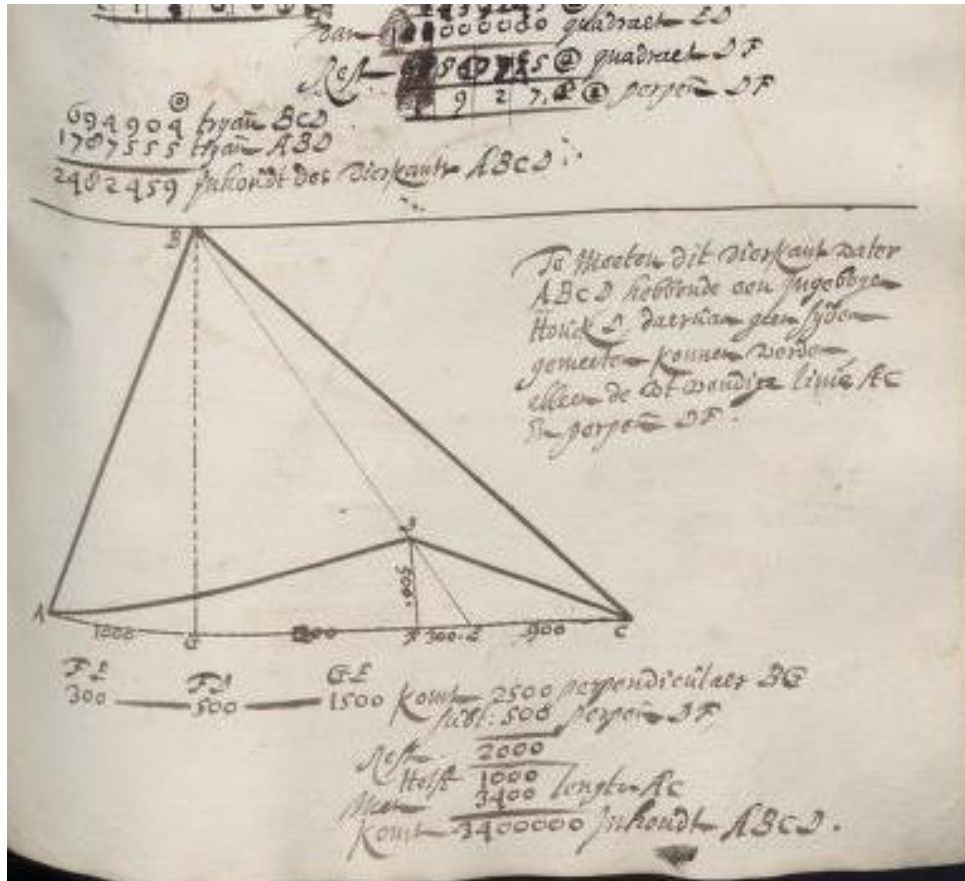 van 1 0000000 quadraet ED
Rest 5 quadraet DF
9 2 7, perpen DF
694904 tryan BCD
1787555 tryan ABD
2482459 Jnhoudt des vierkants ABCD
Te Meeten dit vierkant water
ABCD hebbende een Jngeboge
Houck D daervan geen syden
gemeeten konnen worden
alleen de wtwendige linie AC
En perpen DF.
B
D
500
A 1000 G 1200 F 300 E 900 C
FE FD GE
300 500 1500 komt 2500 perpendiculaer BG
subt: 500 perpen DF
Rest 2000
Helft 1000
Met 3400 lengte AC
Komt 3400000 Jnhoudt ABCD.